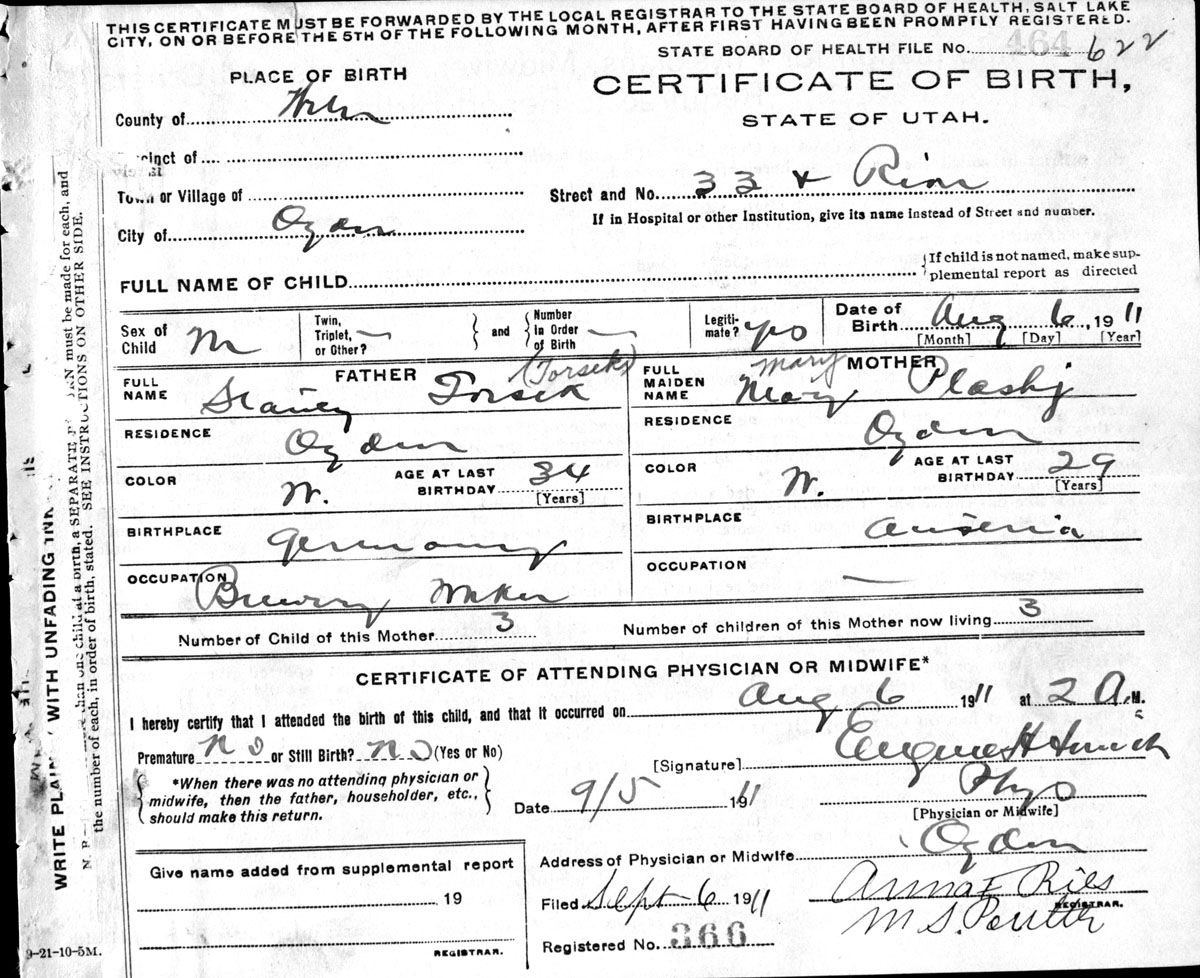 THIS CERTIFICATE MUST BE FORWARDED BY THE LOCAL REGISTRAR TO THE STATE BOARD OF HEALTH, SALT LAKE
CITY, ON OR BEFORE THE 5TH OF THE FOLLOWING MONTH, AFTER FIRST HAVING BEEN PROMPTLY REGISTERED.
STATE BOARD OF HEALTH FILE No. 464 622
PLACE OF BIRTH
CERTIFICATE OF BIRTH,
STATE OF UTAH.
County of
Town or Village of
Street and No. 33 & 
If in Hospital or other Institution, give its name instead of Street and number.
City of Ogden
FULL NAME OF CHILD
If child is not named, make sup-
plemental report as directed
Sex of Child M
Twin, Triplet, or Other? — and Number In Order of Birth —
Legiti-mate? yes
Date of Birth Aug 6, 1911
[Month] [Day] [Year]
FATHER
(Torsek)
FULL NAME Torsek
MOTHER
Mary
FULL MAIDEN NAME Mary
RESIDENCE Ogden
RESIDENCE Ogden
COLOR W.
AGE AT LAST BIRTHDAY 34
[Years]
COLOR W.
AGE AT LAST BIRTHDAY 29
[Years]
BIRTHPLACE Germany
BIRTHPLACE Austria
OCCUPATION Brewery
OCCUPATION —
Number of Child of this Mother 3
Number of children of this Mother now living 3
CERTIFICATE OF ATTENDING PHYSICIAN OR MIDWIFE*
I hereby certify that I attended the birth of this child, and that it occurred on Aug 6 1911 at 2 A.M.
Premature No or Still Birth? No (Yes or No)
[Signature] Eugene H
*When there was no attending physician or
midwife, then the father, householder, etc.,
should make this return.
Date 9/5 1911
Phys
[Physician or Midwife]
Address of Physician or Midwife Ogden
Give name added from supplemental report
19
REGISTRAR.
Filed Sept 6 1911
Anna F Ries
REGISTRAR.
M S
Registered No. 366
9-21-10-5M.
WRITE PLAINLY WITH UNFADING INK
must be made for each, and
the number of each, in order of birth, stated. SEE INSTRUCTIONS ON OTHER SIDE.